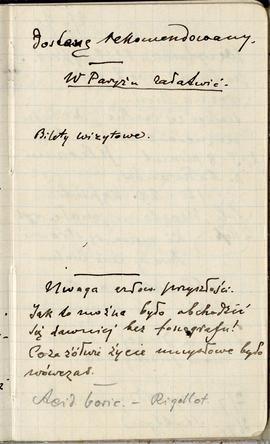 Dostanę rekomendowany.
W Paryżu załatwić.
Bilety wizytowe.
Uwaga przyszłości.
Jak to można było obchodzić
się dawniej bez fonografu!
Coza żółwie życie umysłowe było
wówczas.
Acid boric. - Rigollot